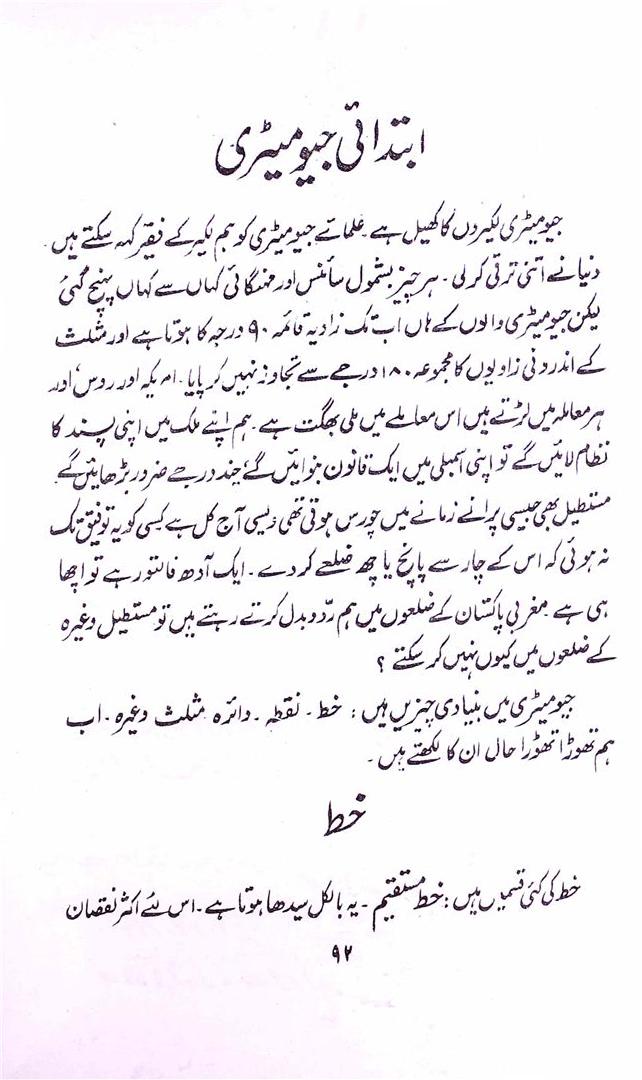 ابتدائی جیومیٹری
جیومیٹری لکیروں کا کھیل ہے۔ علمائے جیومیٹری کو ہم لکیر کے فقیر کہہ سکتے ہیں
دنیا نے اتنی ترقی کر لی۔ ہر چیز بشمول سائنس اور مہنگائی کہاں سے کہاں پہنچ گئی
لیکن جیومیٹری والوں کے ہاں اب تک زاویہ قائمہ ۹۰ درجہ کا ہوتا ہے اور مثلث
کے اندرونی زاویوں کا مجموعہ ۱۸۰ درجے سے تجاوز نہیں کر پایا۔ امریکہ اور روس، اور
ہر معاملہ میں لڑتے ہیں اس معاملے میں ملی بھگت ہے۔ ہم اپنے ملک میں اپنی پسند کا
نظام لائیں گے تو اپنی اسمبلی میں ایک قانون بنوائیں گے، چند درجے ضرور بڑھائیں گے
مستطیل بھی جیسی پرانے زمانے میں چورس ہوتی تھی ویسی آج کل ہے کسی کو یہ توفیق تک
نہ ہوئی کہ اس کے چار سے پانچ یا چھ ضلعے کر دے۔ ایک آدھ فالتو رہے تو اچھا
ہی ہے۔ مغربی پاکستان کے ضلعوں میں ہم ردّ و بدل کرتے رہتے ہیں تو مستطیل وغیرہ
کے ضلعوں میں کیوں نہیں کر سکتے؟
جیومیٹری میں بنیادی چیزیں ہیں: خط۔ نقطہ۔ دائرہ مثلث وغیرہ۔ اب
ہم تھوڑا تھوڑا حال ان کا لکھتے ہیں۔
خط
خط کی کئی قسمیں ہیں: خط مستقیم۔ یہ بالکل سیدھا ہوتا ہے۔ اس لئے اکثر نقصان
۹۲